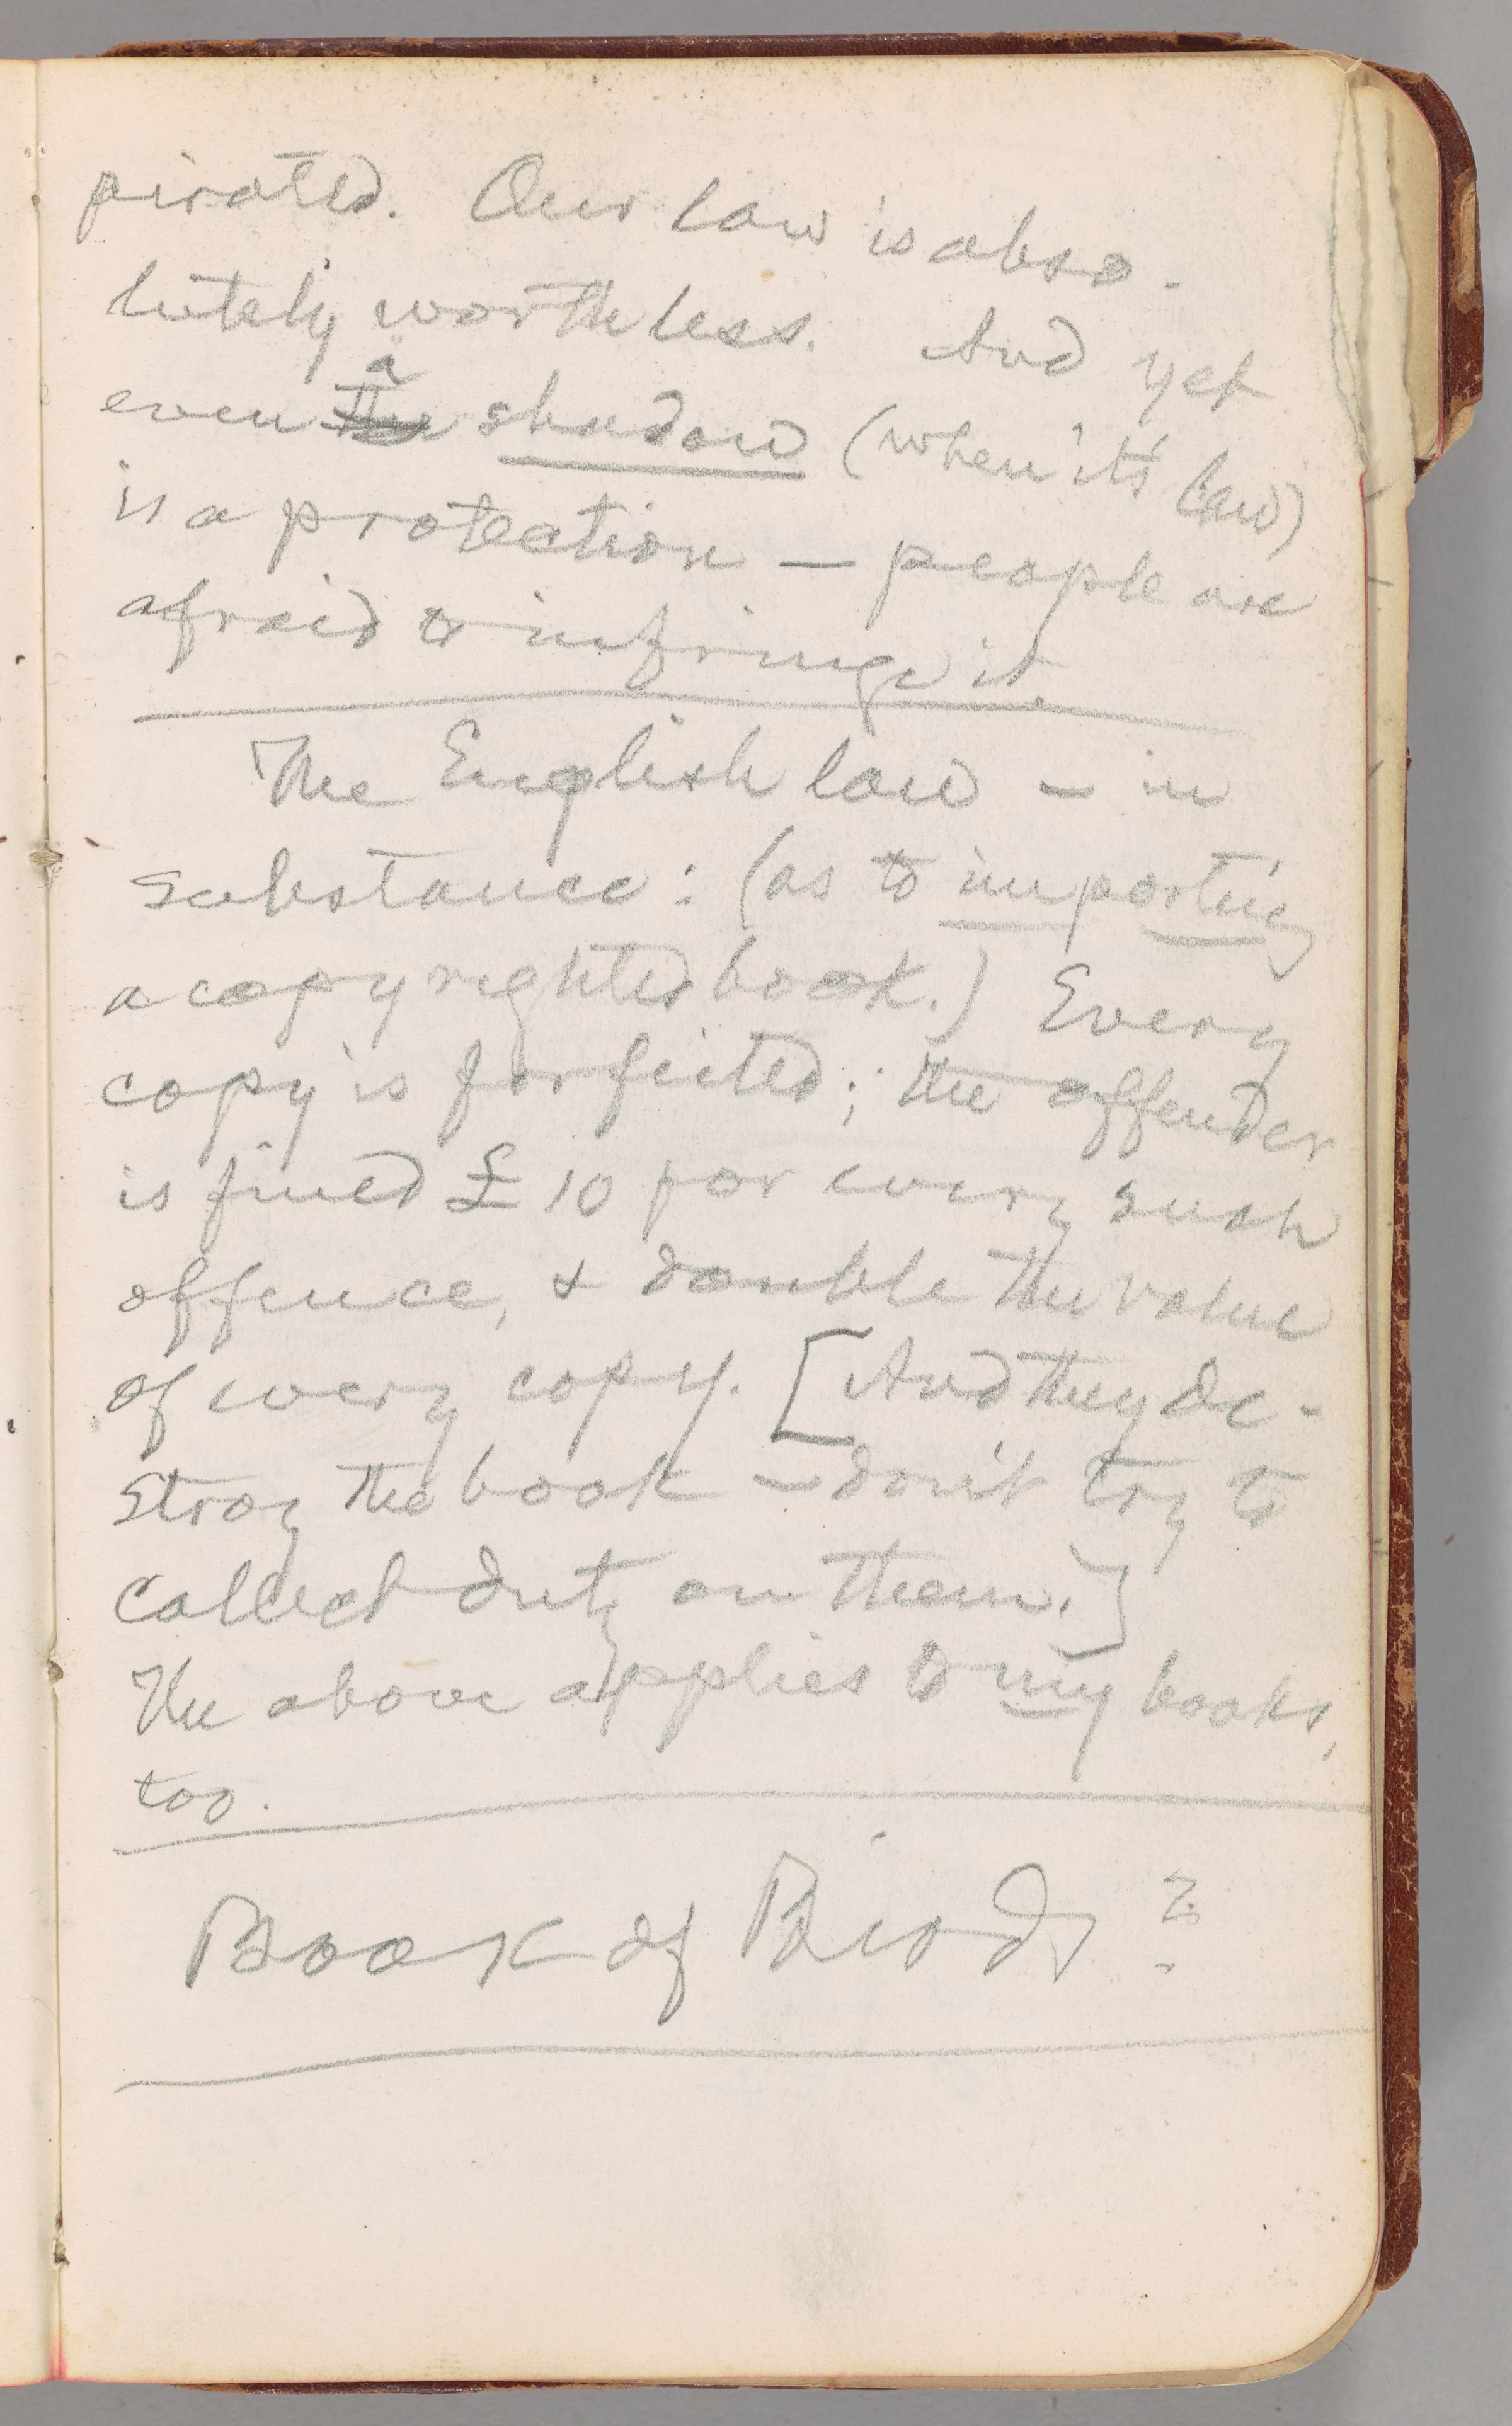 pirated. Our law is abso-
lutely worthless. And yet
even a shadow (when it's law)
is a protection — people are
afraid to infringe it.
The English law — in
substance: (as to importing
a copyrighted book.) Every
copy is forfeited; the offender
is fined £10 for every such
offence, & double the value
of every copy. [And they de-
stroy the book — don't try to
collect duty on them.]
The above applies to my books,
too.
Book of Birds?